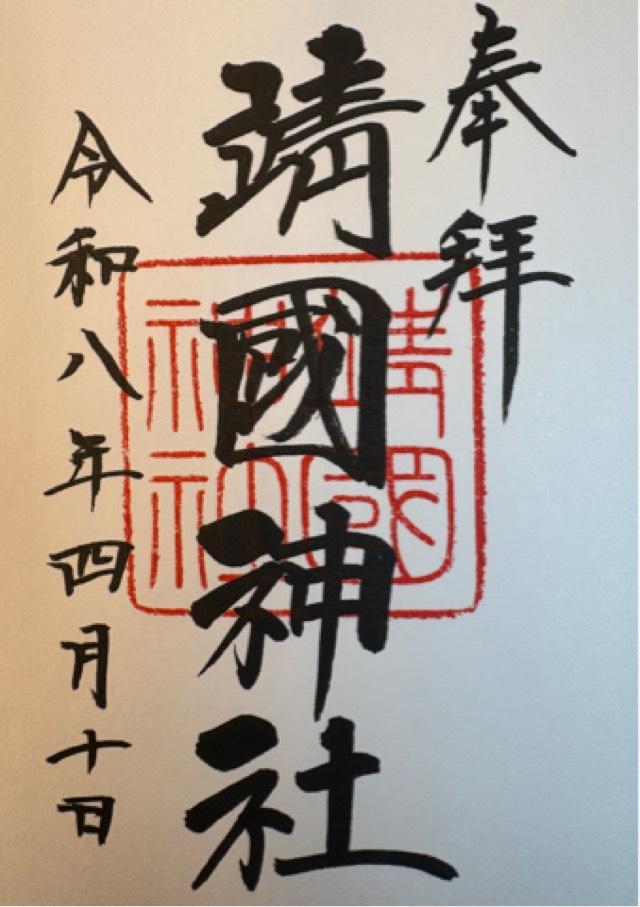 奉拝
靖國神社
令和八年四月十日
靖國
神社